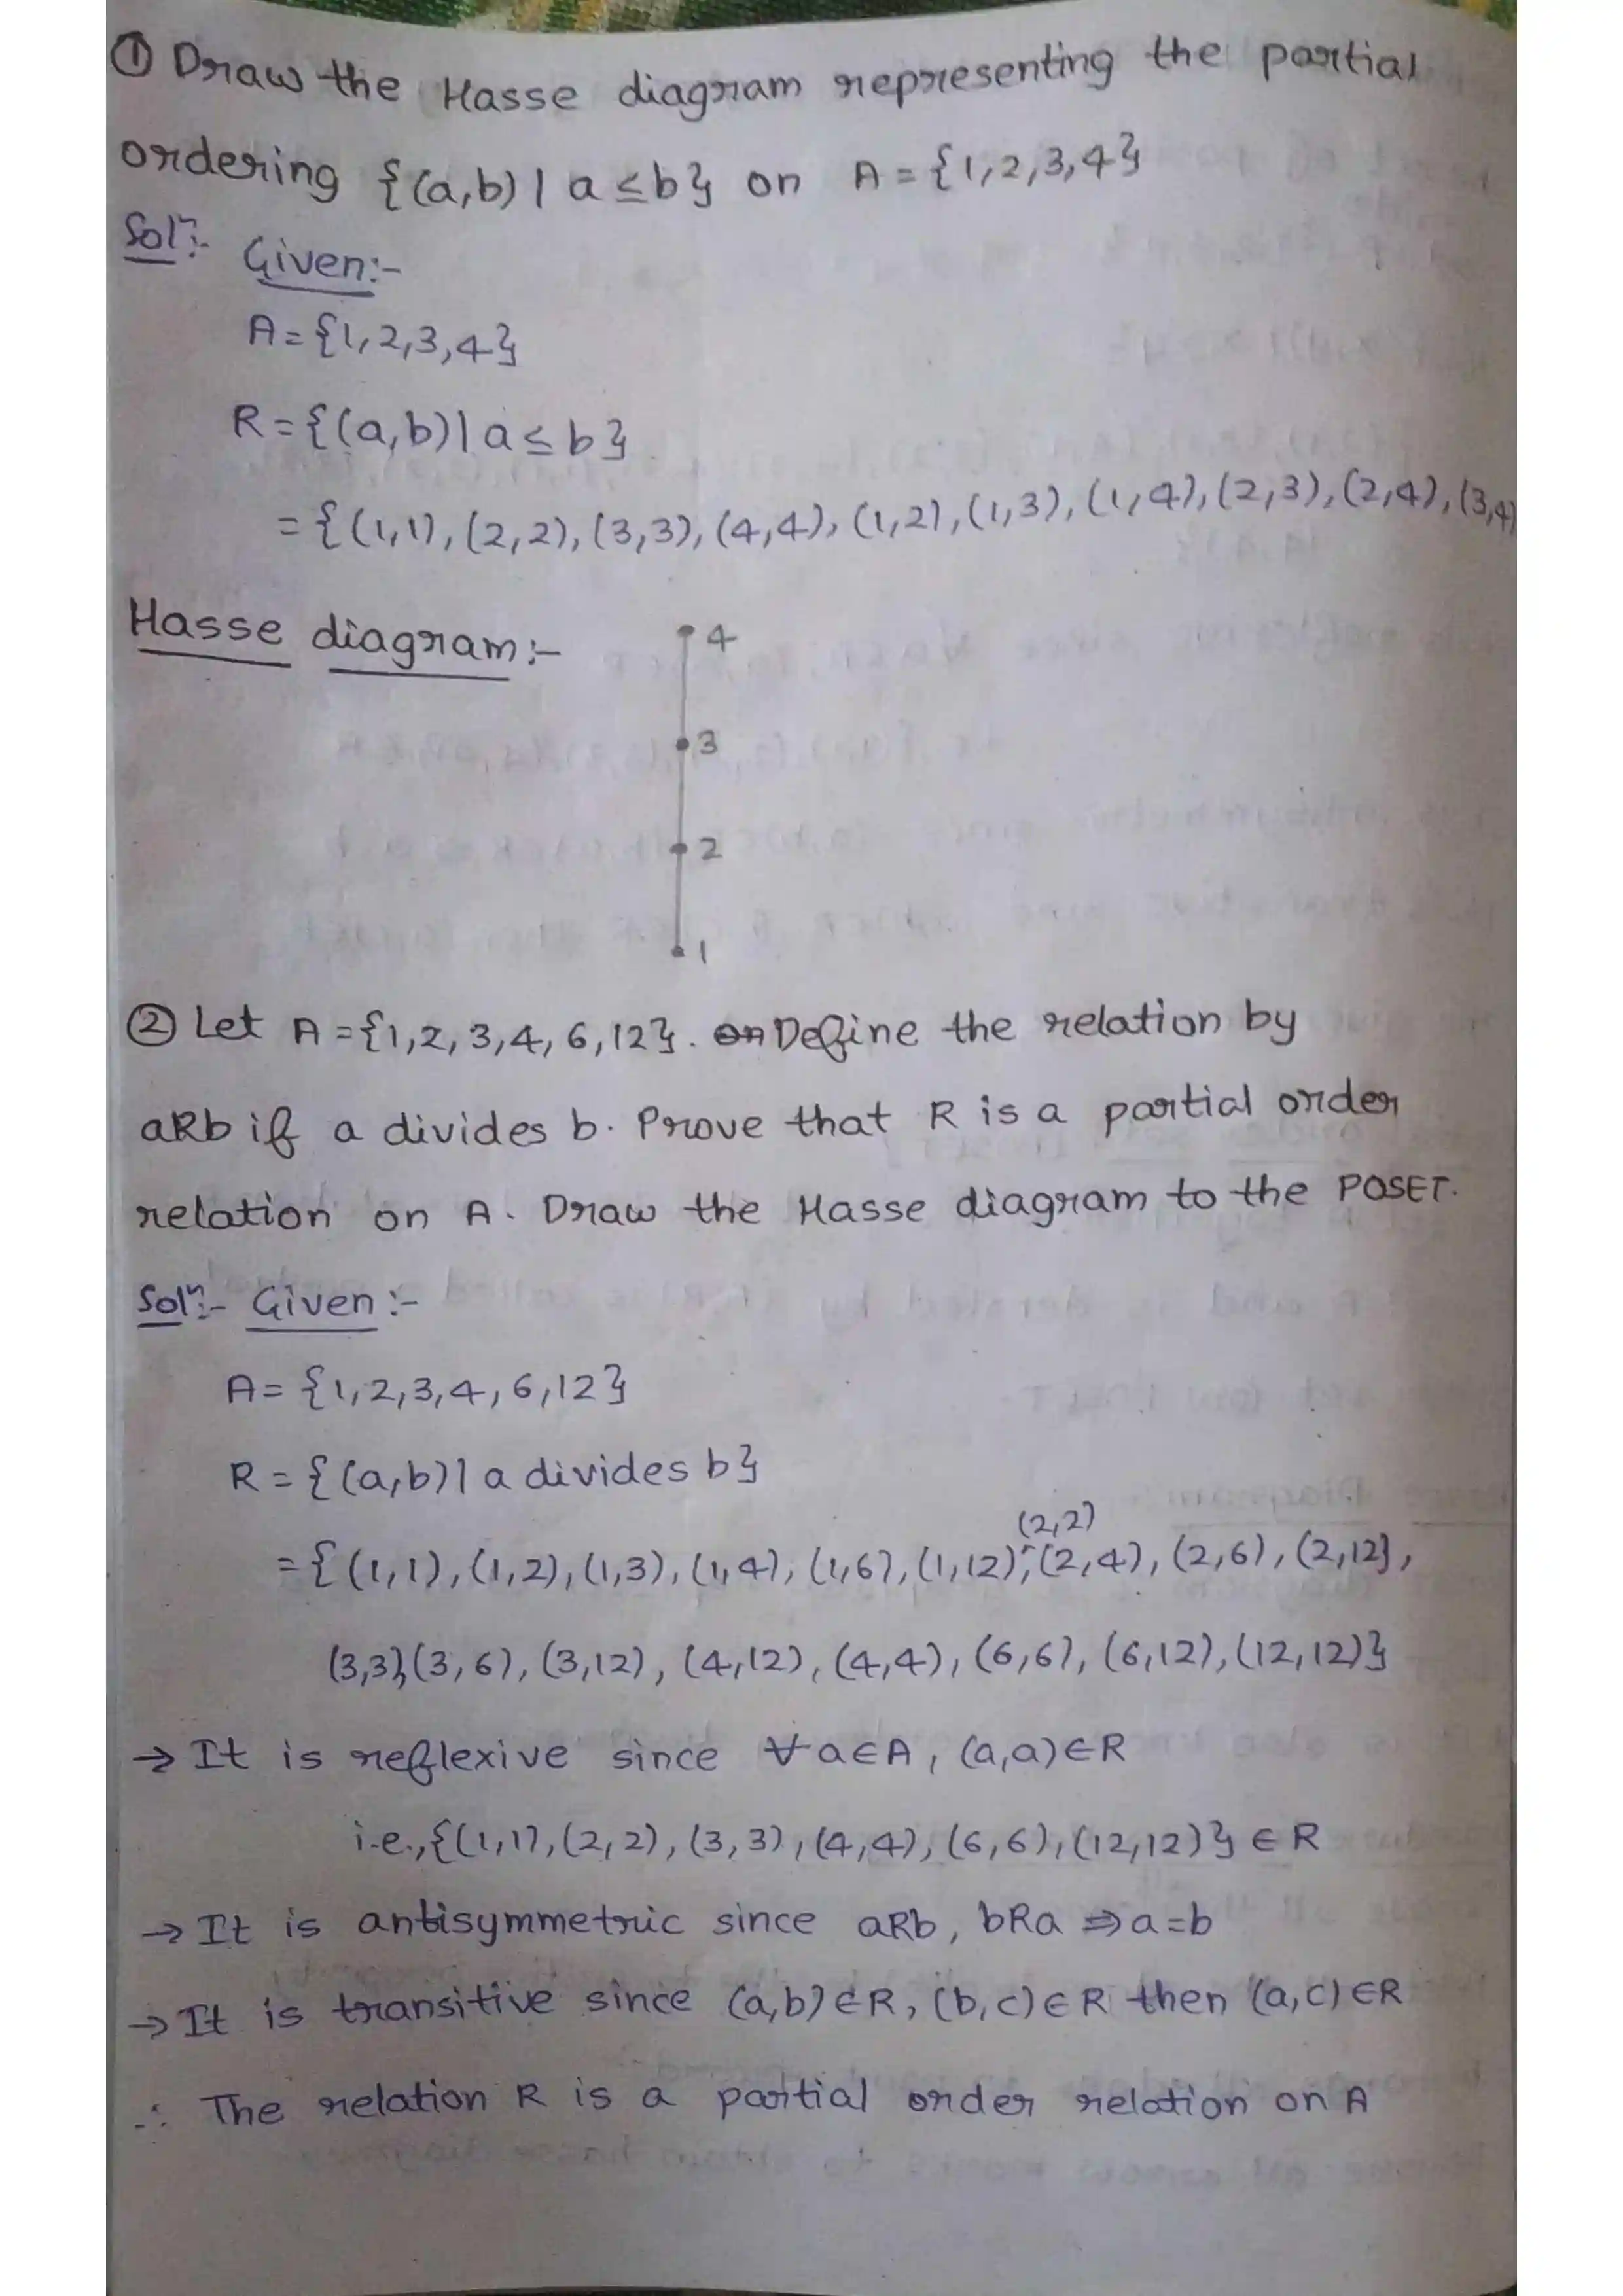 ① Draw the Hasse diagram representing the partial
ordering {(a,b) | a ≤ b} on A = {1,2,3,4}
Solⁿ:-
Given:-
A = {1,2,3,4}
R = {(a,b) | a ≤ b}
= {(1,1), (2,2), (3,3), (4,4), (1,2), (1,3), (1,4), (2,3), (2,4), (3,4)
Hasse diagram:-
4
3
2
1
② Let A = {1,2,3,4,6,12}. Define the relation by
aRb if a divides b. Prove that R is a partial order
relation on A. Draw the Hasse diagram to the POSET.
Solⁿ:- Given :-
A = {1,2,3,4,6,12}
R = {(a,b) | a divides b}
(2,2)
= {(1,1), (1,2), (1,3), (1,4), (1,6), (1,12), (2,4), (2,6), (2,12),
(3,3), (3,6), (3,12), (4,12), (4,4), (6,6), (6,12), (12,12)}
→ It is reflexive since ∀ a∈A, (a,a)∈R
i.e., {(1,1), (2,2), (3,3), (4,4), (6,6), (12,12)} ∈ R
→ It is antisymmetric since aRb, bRa ⇒ a=b
→ It is transitive since (a,b)∈R, (b,c)∈R then (a,c)∈R
∴ The relation R is a partial order relation on A